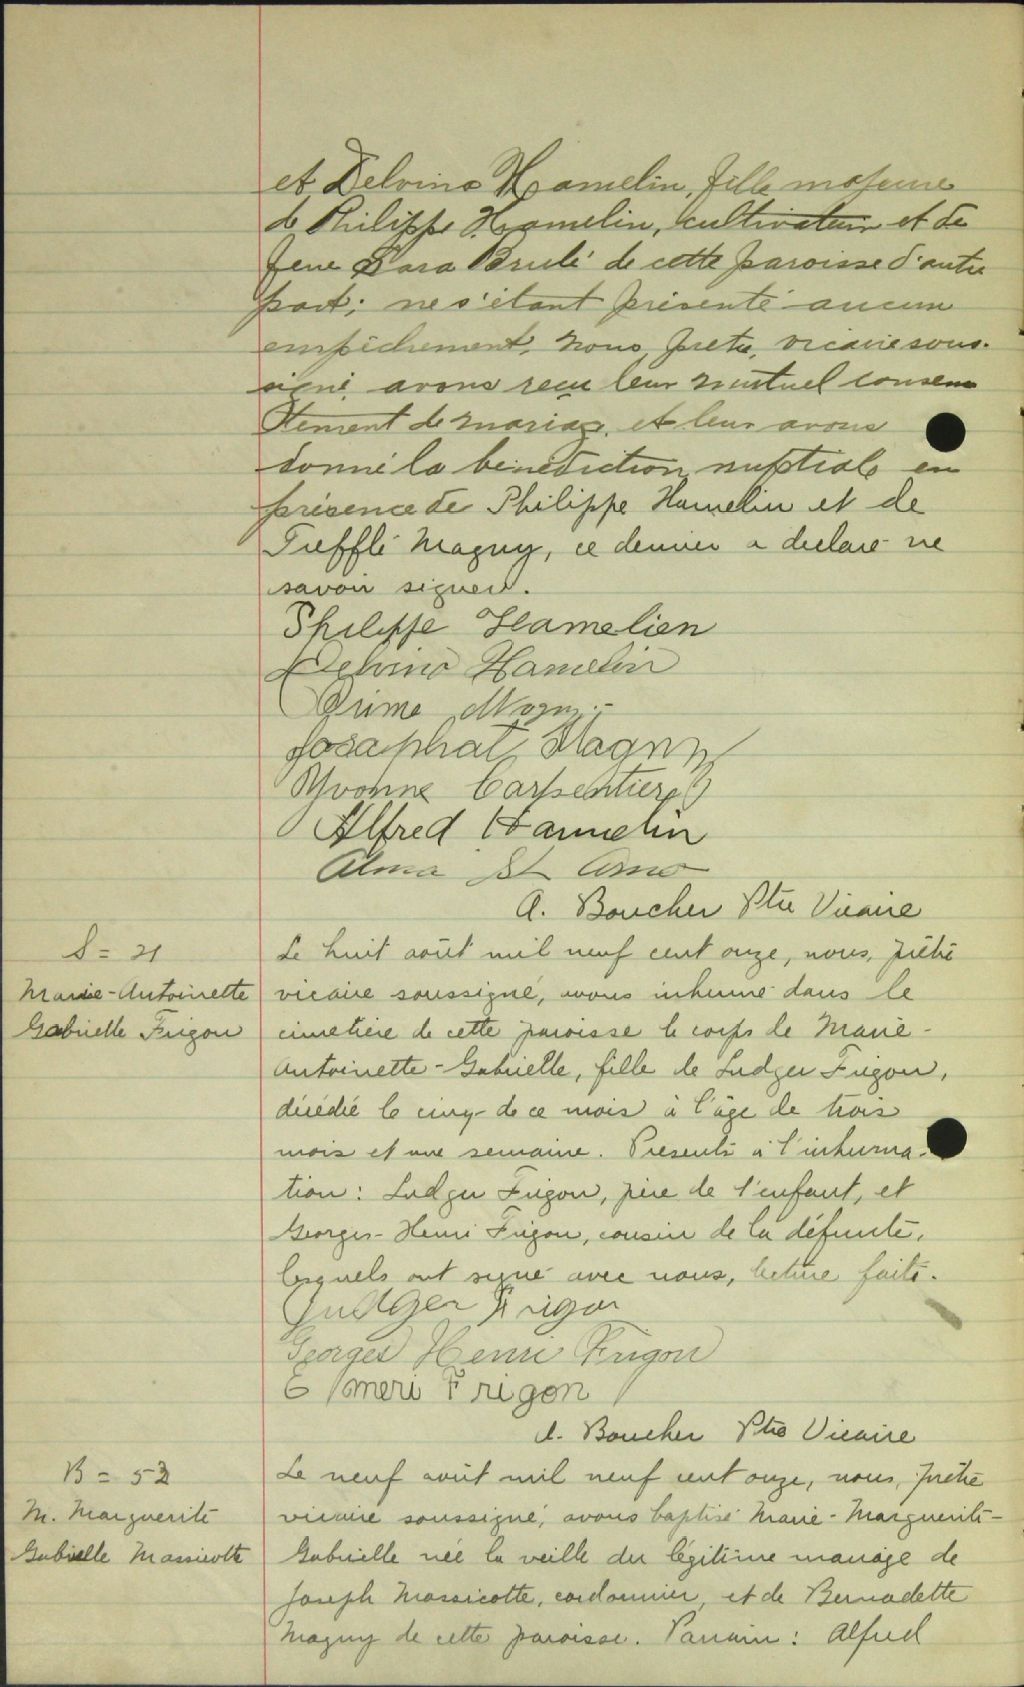 et Delvina Hamelin, fille majeure
de Philippe Hamelin, cultivateur et de
feue Sara Brulé de cette paroisse d'autre
part; ne s'étant présenté aucun
empêchement, nous, prêtre, vicaire sous-
signé, avons reçu leur mutuel consen
tement de mariage, et leur avons
donné la bénédiction nuptiale en
présence de Philippe Hamelin et de
Trefflé Magny, ce dernier a déclaré ne
savoir signer.
Philippe Hamelien
Delvina Hamelin
Prime Magny
Josaphat Magny
Yvonne Carpentier
Alfred Hamelin
Alma St Arno
A. Boucher Ptre Vicaire
S = 21
Marie-Antoinette
Gabrielle Frigon
Le huit août mil neuf cent onze, nous, prêtre
vicaire soussigné, avons inhumé dans le
cimetière de cette paroisse le corps de Marie-
Antoinette-Gabrielle, fille de Ludger Frigon,
décédée le cinq de ce mois à l'âge de trois
mois et une semaine. Présents à l'inhuma-
tion: Ludger Frigon, père de l'enfant, et
Georges-Henri Frigon, cousin de la défunte,
lesquels ont signé avec nous, lecture faite.
Ludger Frigon
Georges Henri Frigon
Emeri Frigon
A. Boucher Ptre Vicaire
B = 52
M. Marguerite
Gabrielle Massicotte
Le neuf août mil neuf cent onze, nous, prêtre
vicaire soussigné, avons baptisé Marie-Marguerite-
Gabrielle née la veille du légitime mariage de
Joseph Massicotte, cordonnier, et de Bernadette
Magny de cette paroisse. Parrain: Alfred